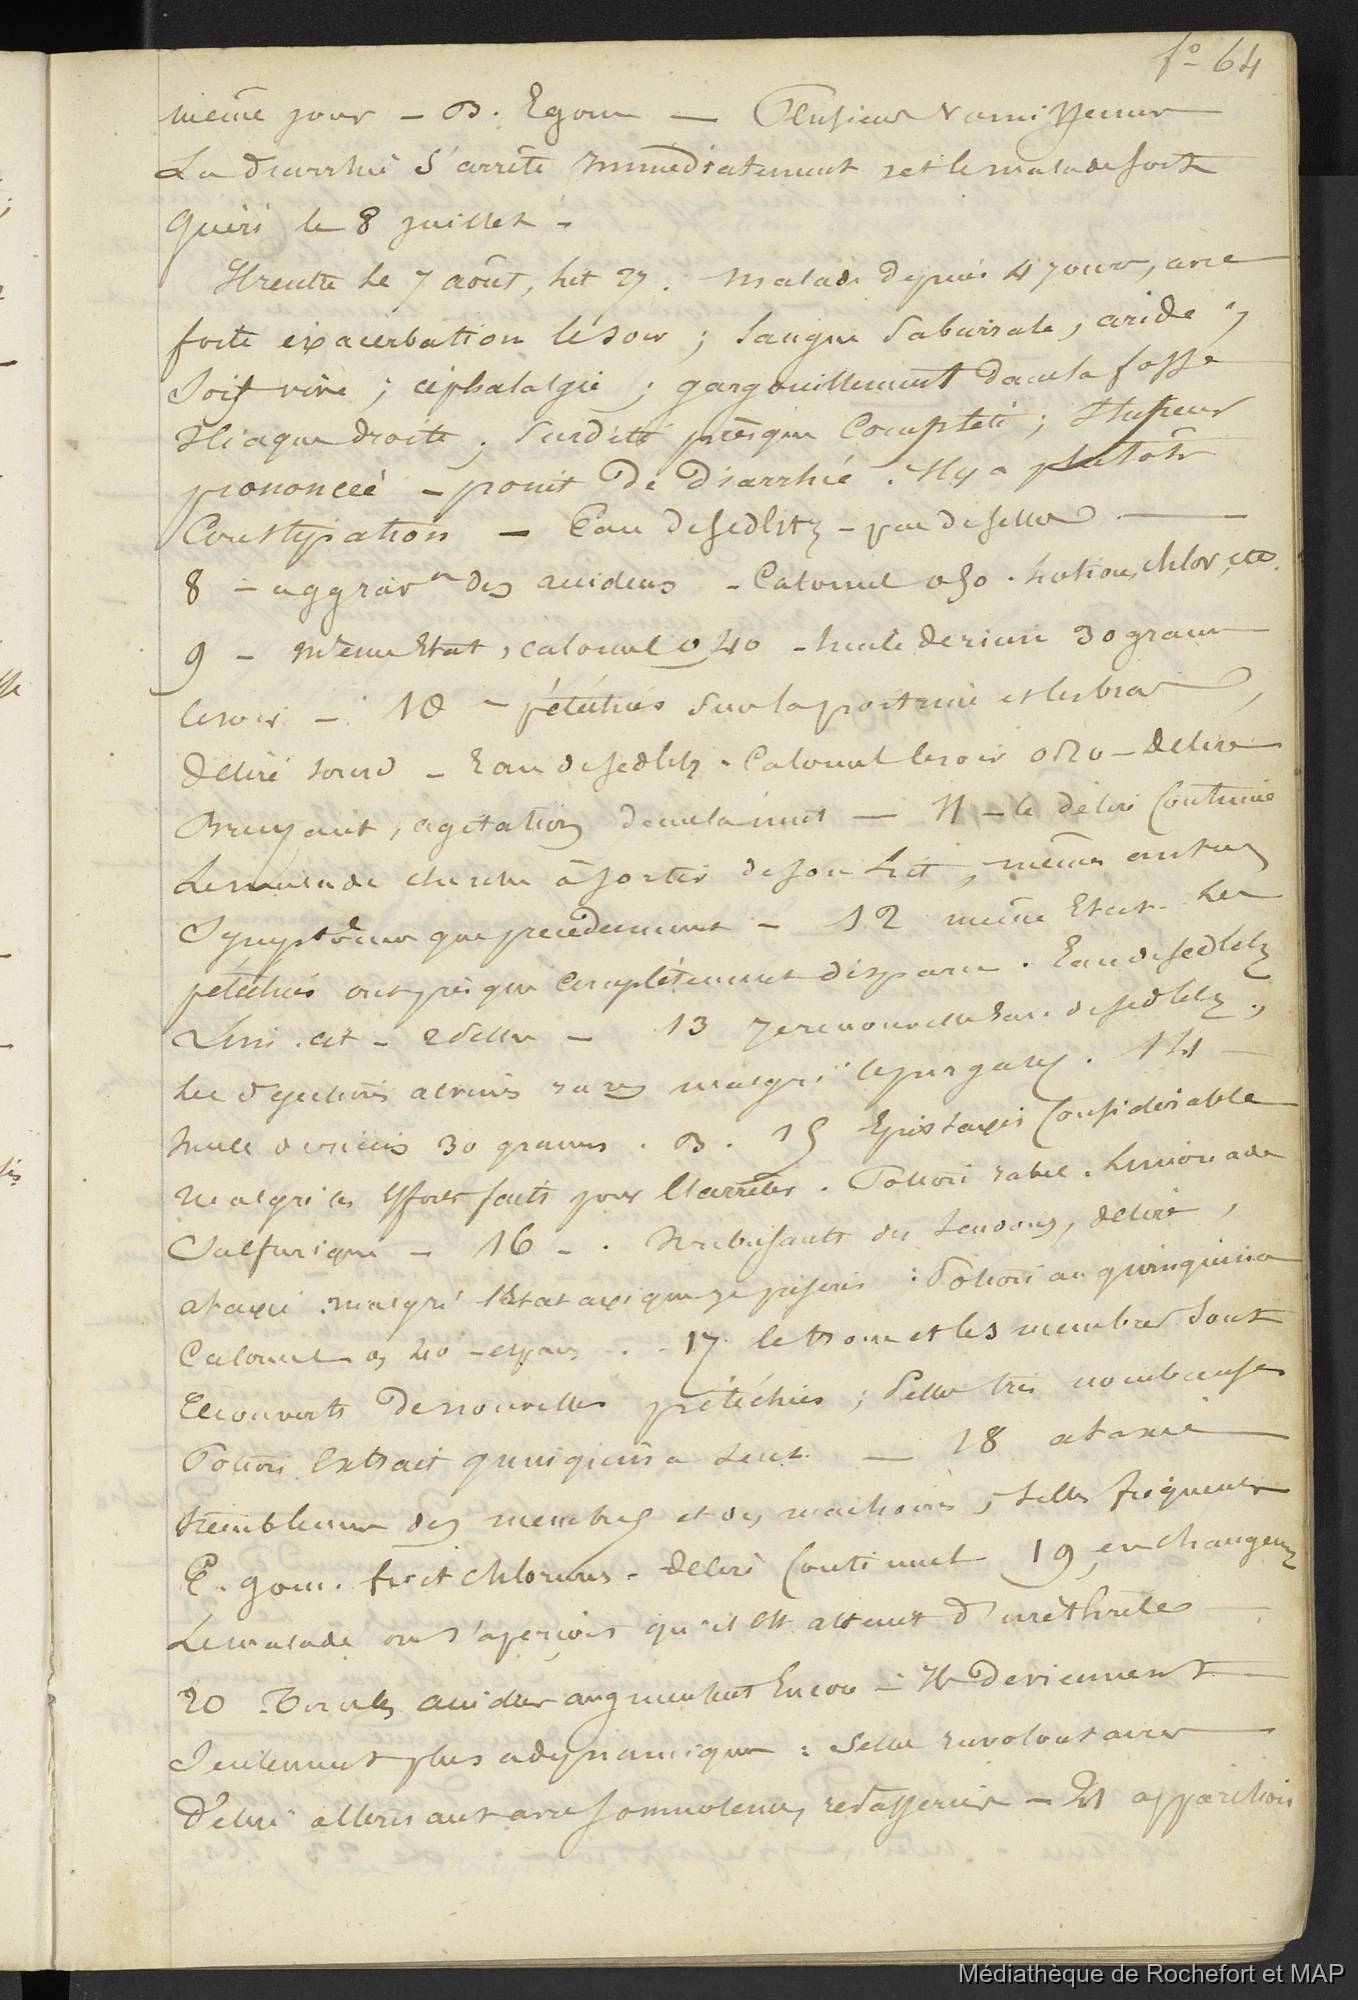 fo 64
même jour — B. Egom — Plusieurs vomissemens
La diarrhée s'arrête immédiatement et le malade sort
Guéri le 8 juillet -
Il rentre le 7 août, lit 27. Malade depuis 4 jours, avec
forte exacerbation le soir ; langue saburrale, aride ;
soif vive ; céphalalgie ; gargouillement dans la fosse
Iliaque droite ; surdité presque complète ; stupeur
prononcée — point de diarrhée. Il y a plutôt
Constipation — Eau de sedlitz — peu de selles —
8 — aggravon des accidens — Calomel 0,50. Potion chlor, etc.
9 — même Etat, calomel 0,40 — huile de ricin 30 grammes
le soir — 10 — pétéchies sur la poitrine et les bras,
Délire sourd — Eau de sedlitz. Calomel le soir 0,50 — Délire
Bruyant, agitation dans la nuit — 11 — le délire continue
Le malade cherche à sortir de son lit, mêmes autres
Symptômes que précédemment — 12 même Etat. Les
pétéchies ont presque complètement disparu. Eau de sedlitz
Lini. cit — 2 selles — 13 je renouvelle l'eau de sedlitz.,
les déjections alvines rares malgré les purgatifs. 14 —
huile de ricin 30 grammes. B. 15 Epistaxis considérable
malgré les efforts faits pour l'arrêter. Potion rabel. Limonade
Sulfurique — 16 —. Soubresauts des tendons, délire,
ataxie. malgré l'état ataxique je prescris : Potion au quinquina
Calomel 0,40 — . . 17 le tronc et les membres sont
recouverts de nouvelles pétéchies ; selles très nombreuses
Potion extrait quinquina — 18 ataxie
tremblemens des membres et des machoires, selles fréquentes
E. gom. chlorures. délire continuel 19, en changeant
Le malade on s'aperçoit qu'il est atteint d'uréthrite —
20 Tous les accidens augmentent encore — Ils deviennent
Seulement plus adynamiques : selles involontaires
Délire alternant avec somnolence, rêvasseries — 21 apparition
Médiathèque de Rochefort et MAP